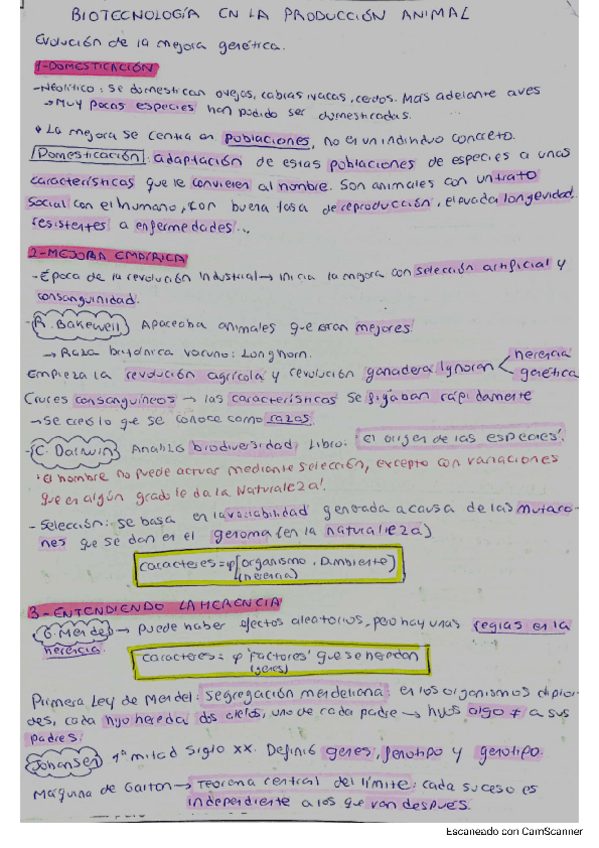 BIOTECNOLOGÍA EN LA PRODUCCIÓN ANIMAL
Evolución de la mejora genética.
1-DOMESTICACIÓN
-Neolítico: se domestican ovejas, cabras, vacas, cerdos. Más adelante aves
→ Muy pocas especies han podido ser domesticadas.
• La mejora se centra en poblaciones, no en un individuo concreto.
Domesticación: adaptación de estas poblaciones de especies a unas
características que le convienen al hombre. Son animales con un trato
social con el humano, con buena tasa de reproducción, elevada longevidad,
resistentes a enfermedades...
2-MEJORA EMPÍRICA
-Época de la revolución industrial → inicia la mejora con selección artificial y
consanguinidad.
-R. Bakewell Apareaba animales que eran mejores
→ Raza británica vacuno: Longhorn.
Empieza la revolución agrícola y revolución ganadera. Ignoran < herencia
genética
Cruces consanguíneos → las características se fijaban rápidamente
→ Se creó lo que se conoce como razas
-C. Darwin Analizó biodiversidad, Libro: 'El origen de las especies'.
'El hombre no puede actuar mediante selección, excepto con variaciones
que en algún grado le da la Naturaleza'.
-Selección: se basa en la variabilidad generada a causa de las mutacio-
nes que se dan en el genoma (en la naturaleza)
caracteres = φ [organismo . ambiente]
(herencia)
3-ENTENDIENDO LA HERENCIA
G. Mendel → puede haber efectos aleatorios, pero hay unas reglas en la
herencia.
caracteres = φ 'factores' que se heredan
(genes)
Primera Ley de Mendel: segregación mendeliana: en los organismos diploi-
des, cada hijo hereda dos alelos, uno de cada padre → hijos algo ≠ a sus
padres.
Johansen 1ª mitad Siglo XX. Definió genes, fenotipo y genotipo.
Máquina de Galton → Teorema central del límite: cada suceso es
independiente a los que van después.
Escaneado con CamScanner